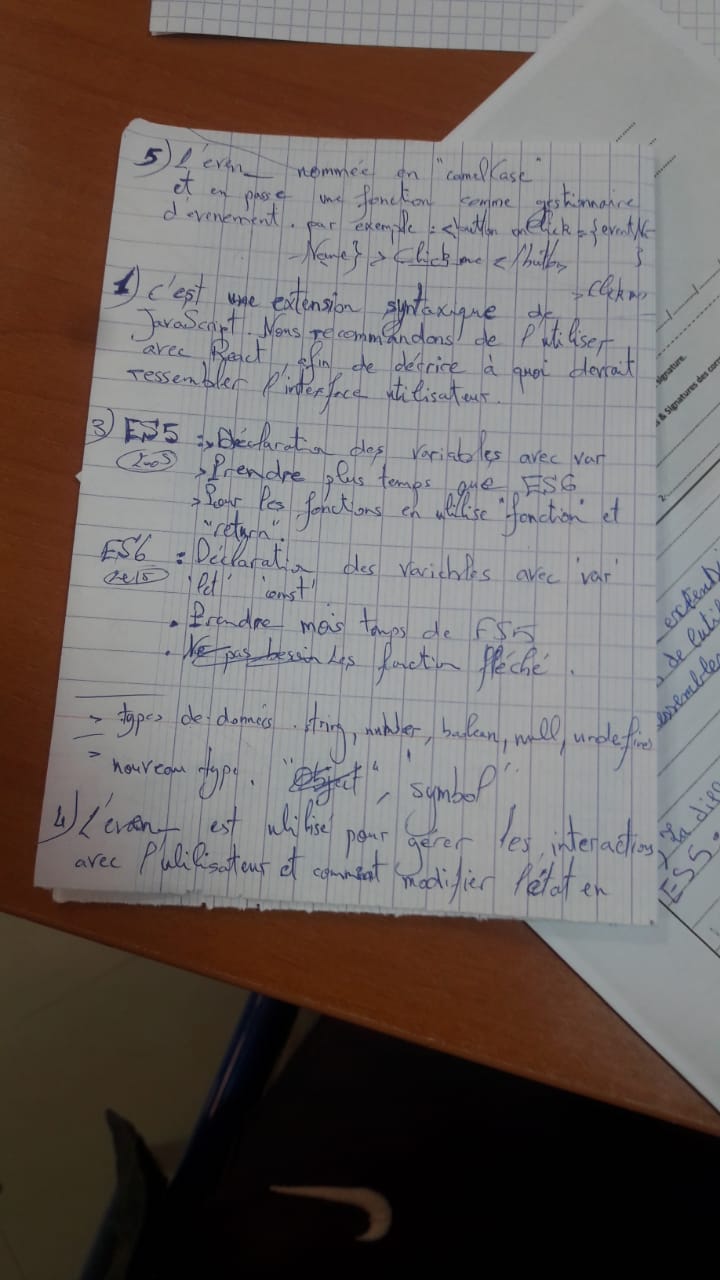 5) L'éven_ nommée en "camelCase"
et en passe une fonction comme gestionnaire
d'évenement. par exemple : <button onClick = {event
Name} > Click me </button>
> Click me
1) c'est une extension syntaxique de
JavaScript. Nous recommandons de l'utiliser
avec React afin de décrire à quoi devrait
ressembler l'interface utilisateur.
3) ES5 : > Déclaration des variables avec var
2009 > Prendre plus temps que ES6
> Pour les fonctions en utilise "fonction" et
"return".
ES6 : Déclaration des variables avec 'var'
2015 'let' 'const'
• Prendre mois temps de ES5
• Ne pas bessin Les function fléché .
=> types de données . string, number, boolean, null, undefined
= nouveau type. "Object", symbol
4) L'éven_ est utilisé pour gérer les interactions
avec l'utilisateur et comment modifier l'état en
signature.
& Signatures des
de l'utili
ressembler
La
ES5.